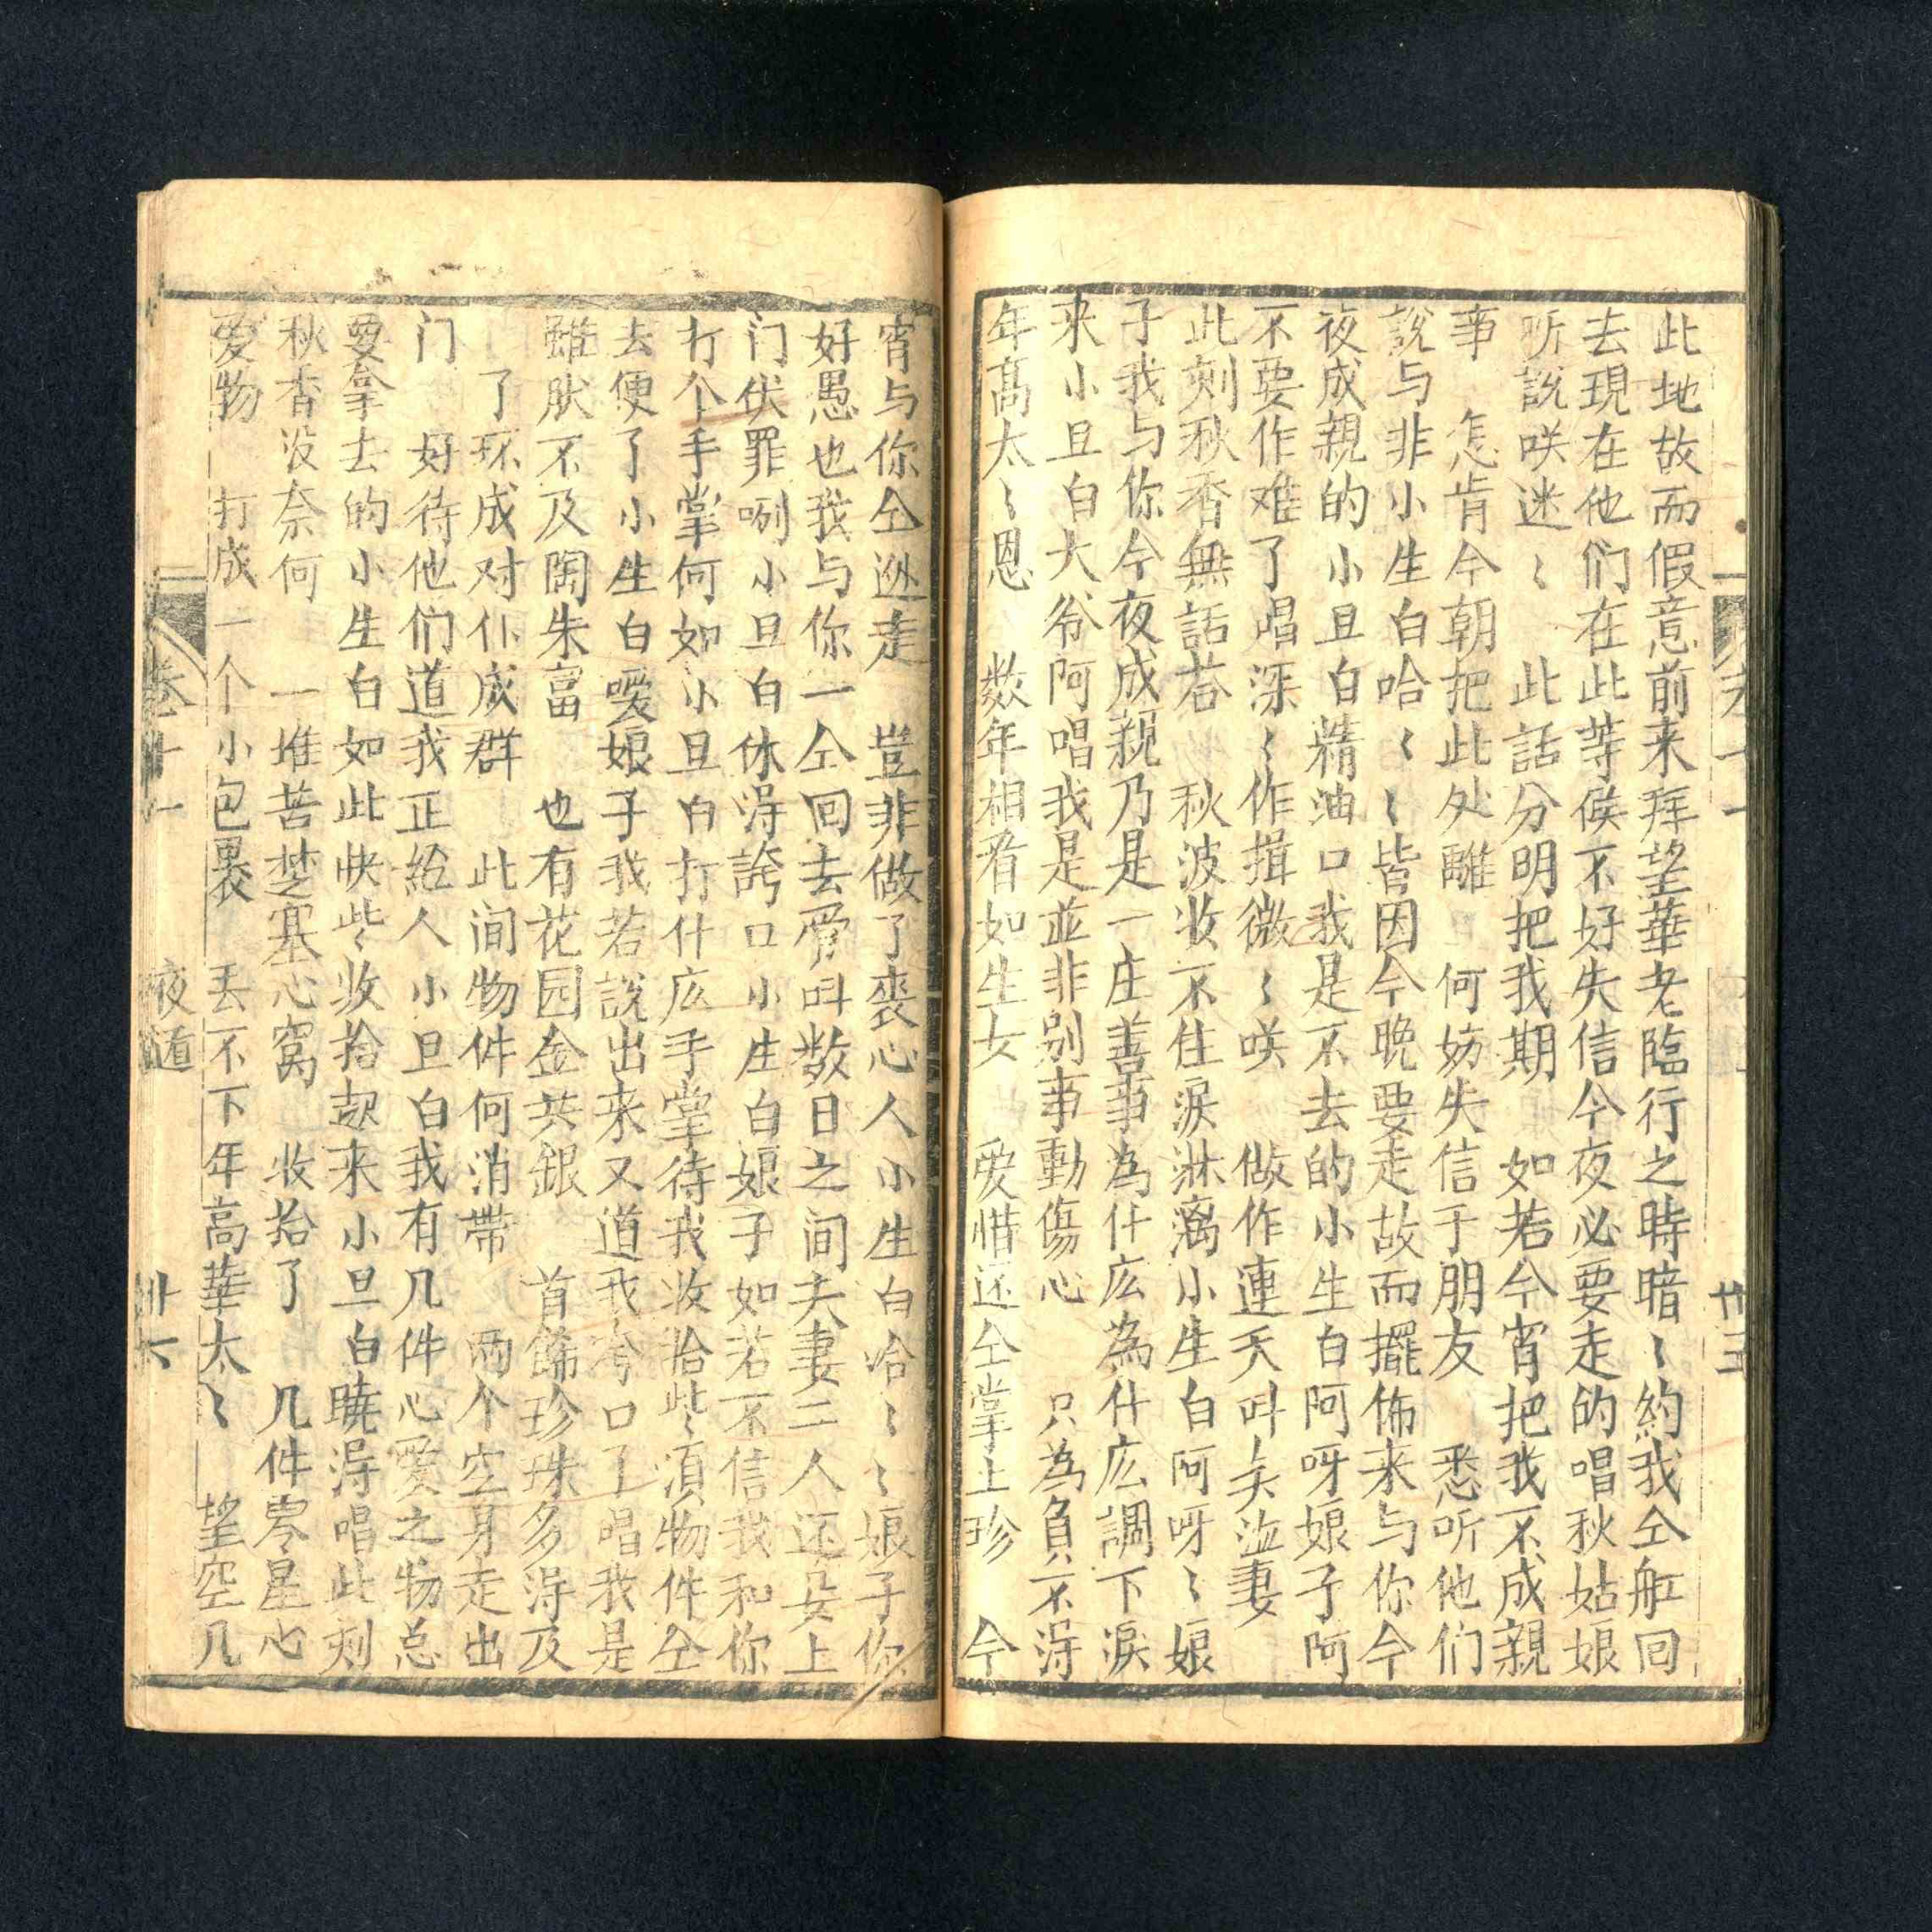 此地故而假意前来拜望華老臨行之時暗〻約我仝舡回
去現在他们在此等候不好失信今夜必要走的唱秋姑娘
听說咲迷〻　此話分明把我期　如若今宵把我不成親
事　怎肯今朝把此处離　何妨失信于朋友　悉听他们
說与非小生白哈〻〻皆因今晚要走故而擺佈来与你今
夜成親的小旦白精油口我是不去的小生白阿呀娘子阿
不要作难了唱深〻作揖微〻咲　做作連天叫夫妻
此刻秋香無話荅　秋波收不住淚淋漓小生白阿呀〻娘
子我与你今夜成親乃是一庄善事為什庅為什庅調下淚
来小旦白大爷阿唱我是並非别事動傷心　只為負不淂
年高太〻恩　数年相看如生女　爱惜还仝掌上珍　今
宵与你仝逃走　豈非做了喪心人小生白哈〻〻娘子你
好愚也我与你一仝回去育叫数日之间夫妻二人还女上
门伏罪咧小旦白休淂誇口小生白娘子如若不信我和你
打个手掌何如小旦白打什庅手掌待我收拾些〻須物件仝
去便了小生白嗳娘子我若說出来又道我夸口了唱我是
雖肰不及陶朱富　也有花园金共銀　首飾珍珠多淂及
了环成对仆成群　此间物件何消帶　两个空身走出
门　好待他们道我正給人小旦白我有几件心爱之物总
要拿去的小生白如此快些〻收拾起来小旦白曉淂唱此刻
秋香没奈何　一堆苦楚塞心窩　收拾了　几件零星心
爱物　打成一个小包裹　丢不下年高華太〻　望空几
卷十一　夜道　卅六